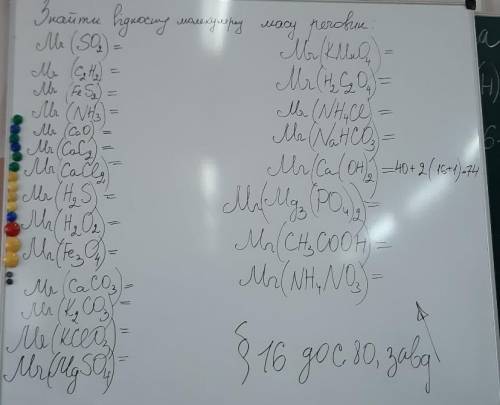 Знайти відносну молекулярну масу речовин:
Mr (SO₂) =
Mr (C₂H₂) =
Mr (FeS₂) =
Mr (NH₃) =
Mr (CaO) =
Mr (CaC₂) =
Mr (CaCl₂) =
Mr (H₂S) =
Mr (H₂O₂) =
Mr (Fe₃O₄) =
Mr (CaCO₃) =
Mr (K₂CO₃) =
Mr (KClO₃) =
Mr (MgSO₄) =
Mr (KMnO₄) =
Mr (H₂C₂O₄) =
Mr (NH₄Cl) =
Mr (NaHCO₃) =
Mr (Ca(OH)₂) = 40+2(16+1)=74
Mr (Mg₃(PO₄)₂) =
Mr (CH₃COOH) =
Mr (NH₄NO₃) =
§ 16 до с. 80, завд